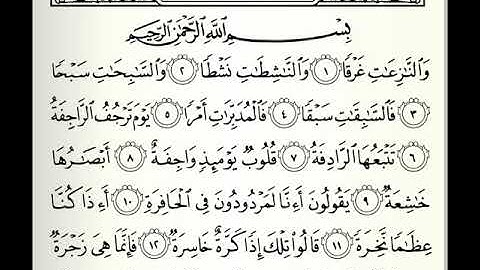 بِسْمِ اللَّهِ الرَّحْمَٰنِ الرَّحِيمِ
وَالنَّازِعَاتِ غَرْقًا ١ وَالنَّاشِطَاتِ نَشْطًا ٢ وَالسَّابِحَاتِ سَبْحًا
٣ فَالسَّابِقَاتِ سَبْقًا ٤ فَالْمُدَبِّرَاتِ أَمْرًا ٥ يَوْمَ تَرْجُفُ الرَّاجِفَةُ
٦ تَتْبَعُهَا الرَّادِفَةُ ٧ قُلُوبٌ يَوْمَئِذٍ وَاجِفَةٌ ٨ أَبْصَارُهَا
خَاشِعَةٌ ٩ يَقُولُونَ أَءِنَّا لَمَرْدُودُونَ فِي الْحَافِرَةِ ١٠ أَءِذَا كُنَّا
عِظَامًا نَّخِرَةً ١١ قَالُوا تِلْكَ إِذًا كَرَّةٌ خَاسِرَةٌ ١٢ فَإِنَّمَا هِيَ زَجْرَةٌ